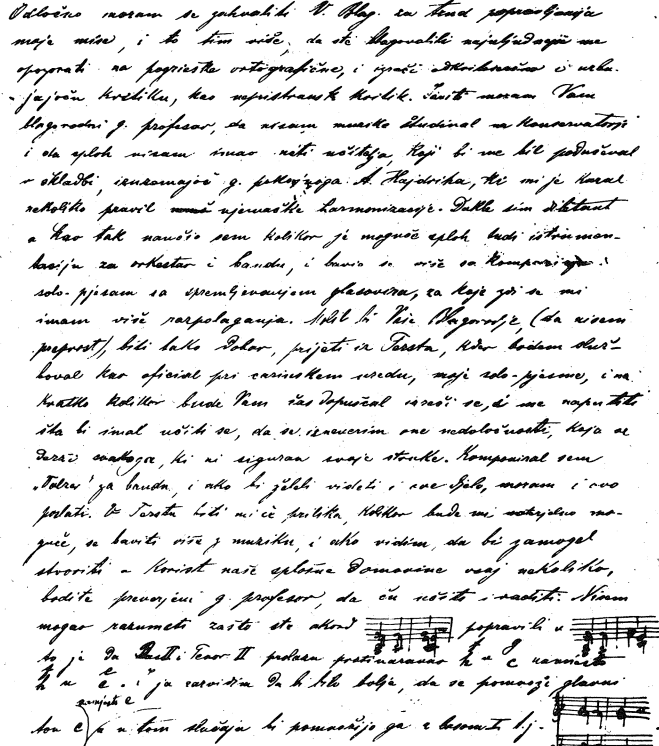 Odlučno moram se zahvaliti V. Blag. za trud popravljanja
moje mise, i to tim više, da ste blagovolili najuljudnije me
opozorati na pogrieške ortografične, i izreči
jajoču kritiku, kao nepristransk kritik. moram Vam
blagorodni g. profesor, da nisam muziko študiral na konservatoriji
i da sploh nisam imao niti učitelja, koji bi me bil podučeval
v skladbi, izuzamajoč g. pokojnoga A. Hajdriha, ki mi je kazal
nekoliko pravil njemaške harmonizacije. Dakle sim diletant
a kao tak naučio sem kolikor je moguče sploh tudi istrumen-
taciju za orkestar i bandu, i bavio se više sa kompozicijo i
solo-pjesam sa spremljevanjem glasovira, za koje zdi se mi
imam više razpolaganja. Molil bi Vaše Blagorodje, (da nisem
preprost), biti tako dobar, prijeti iz Tersta, kder bodem služ-
boval kao oficial pri carinskem uredu, moje solo-pjesme, i na
kratko kolikor bude Vam čas dopuščal izreči se, i me naputiti
šta bi imal učiti se, da se izneverim one nedoločnosti, koja se
derži svakoga, ki ni siguran svoje stroke. Komponiral sem
"Valzer" za bandu, i ako bi želeli videti i ove djelo, moram i ovo
poslati. V Terstu biti mi če prilika, kolikor bude mi mo-
guče, se baviti više z muziku, i ako vidim, da bi zamogel
stvoriti u korist naše splošne domovine vsaj nekoliko,
bodite prevrjeni g. profesor, da ču učiti i raditi. Nisem
mogao razumeti zašto ste akord popravili u
to je da Bass i Tenor II predaru h u c
h u c. i ja razvidim da bi bilo bolje, da se pomnoži glavni
namjesto e
ton c pa u tom slučaju bi pomnožijo ga z basom t. j.